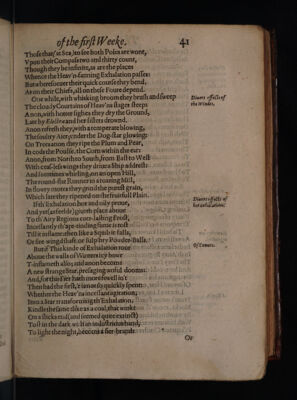 of the first Weeke. 41
Those that (at Sea) to see both Poles are wont,
Vpon their Compasse two and thirty count,
Though they be infinite, as are the places
Whence the Heav'n-fanning Exhalation passes:
But wheresoever their quick course they bend,
As on their Chiefs, all on these Foure depend.
One while, with whisking broom they brush and sweep
The cloudy Courtains of Heav'ns stages steep:
Anon, with hotter sighes they dry the Ground,
Late by Electra and her sisters drownd.
Anon refresh they, with a temperate blowing,
The soultry Aier, under the Dog-star glowing:
On Trees anon they ripe the Plum and Pear,
In cods the Poulse, the Corn within the ear:
Anon, from North to South, from East to West
With ceas-les wings they drive a Ship addrest:
And somtimes whirling, on an open Hill,
The round-flat Runner in a roaring Mill,
In flowry motes they grinde the purest grain,
Which late they ripened on the fruitfull Plain.
If th' Exhalation hot and oily proue,
And yet (as feeble) giueth place aboue
To th' Airy Regions euer-lasting Frost,
Incessantly th' apt-tinding fume is tost
Till it inflame: then like a Squib it falls,
Or fire-wing'd shaft, or sulp'hry Powder-Balls.
But if This kinde of Exhalation tour
Aboue the walls of Winters icy bowr
T'inflameth also; and anon becoms
A new strange Star, presaging wofull dooms:
And, for this Fier hath more fewell in't
Then had the first, 'tis not so quickly spent:
Whether the Heav'ns incessant agitation,
Into a Star transforming th' Exhalation,
Kindle the same: like as a coal, that winkt
On a sticks end (and seemed quite extinct)
Tost in the dark with an industrious hand,
To light the night, becoms a fier-brand:
Or
Diuers effects of
the windes.
Diuers effects of
hot exhalations.
Of Comets.